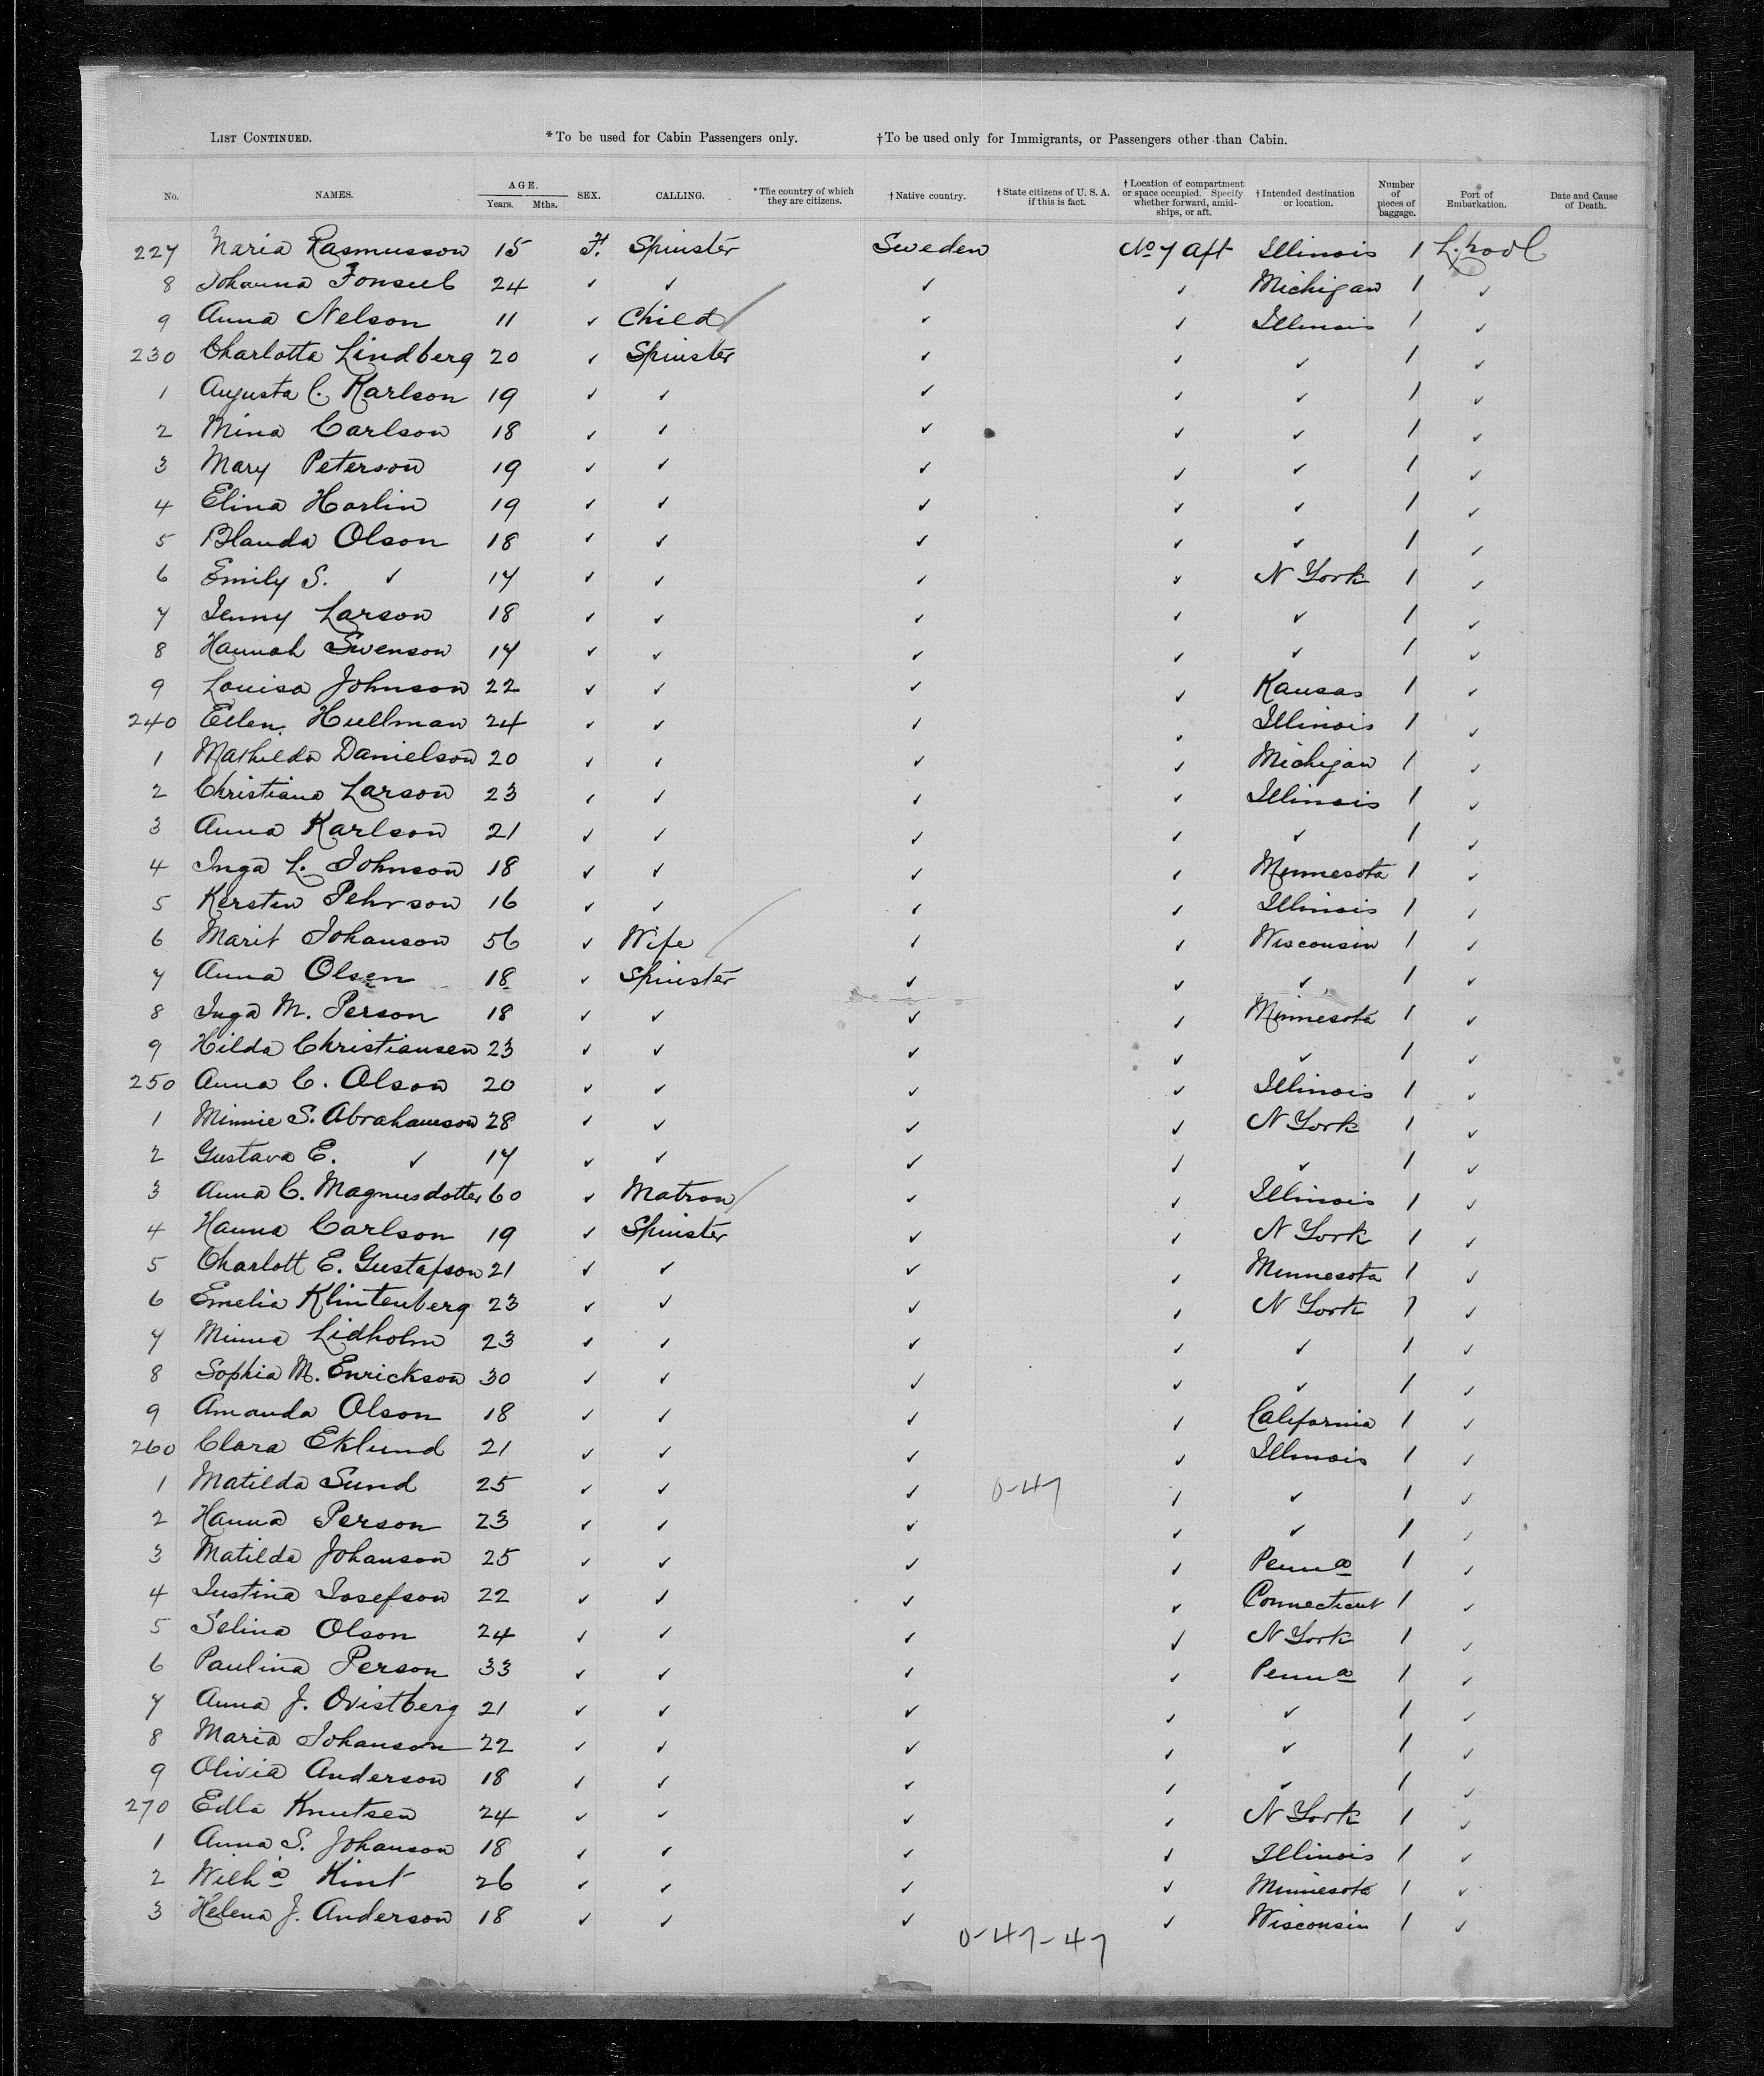 LIST CONTINUED. *To be used for Cabin Passengers only. †To be used only for Immigrants, or Passengers other than Cabin.
No. NAMES. AGE. Years. Mths. SEX. CALLING. *The country of which they are citizens. †Native country. †State citizens of U. S. A. if this is fact. †Location of compartment or space occupied. Specify whether forward, amidships, or aft. †Intended destination or location. Number of pieces of baggage. Port of Embarkation. Date and Cause of Death.
227 Maria Rasmusson 15 F. Spinster Sweden No 7 aft Illinois 1 L.pool
8 Johanna 24 ✓ ✓ ✓ ✓ Michigan 1 ✓
9 Anna Nelson 11 ✓ Child ✓ ✓ Illinois 1 ✓
230 Charlotta Lindberg 20 ✓ Spinster ✓ ✓ ✓ 1 ✓
1 Augusta C. Karlson 19 ✓ ✓ ✓ ✓ ✓ 1 ✓
2 Mina Carlson 18 ✓ ✓ ✓ ✓ ✓ 1 ✓
3 Mary Peterson 19 ✓ ✓ ✓ ✓ ✓ 1 ✓
4 Elina Harlin 19 ✓ ✓ ✓ ✓ ✓ 1 ✓
5 Blanda Olson 18 ✓ ✓ ✓ ✓ ✓ 1 ✓
6 Emily S. ✓ 17 ✓ ✓ ✓ ✓ N York 1 ✓
7 Jenny Larson 18 ✓ ✓ ✓ ✓ ✓ 1 ✓
8 Hannah Swenson 17 ✓ ✓ ✓ ✓ ✓ 1 ✓
9 Louisa Johnson 22 ✓ ✓ ✓ ✓ Kansas 1 ✓
240 Ellen Hullman 24 ✓ ✓ ✓ ✓ Illinois 1 ✓
1 Mathilda Danielson 20 ✓ ✓ ✓ ✓ Michigan 1 ✓
2 Christiana Larson 23 ✓ ✓ ✓ ✓ Illinois 1 ✓
3 Anna Karlson 21 ✓ ✓ ✓ ✓ ✓ 1 ✓
4 Inga L. Johnson 18 ✓ ✓ ✓ ✓ Minnesota 1 ✓
5 Kersten Pehrson 16 ✓ ✓ ✓ ✓ Illinois 1 ✓
6 Marit Johanson 56 ✓ Wife ✓ ✓ Wisconsin 1 ✓
7 Anna Olsen 18 ✓ Spinster ✓ ✓ ✓ 1 ✓
8 Inga M. Person 18 ✓ ✓ ✓ ✓ Minnesota 1 ✓
9 Hilda Christiansen 23 ✓ ✓ ✓ ✓ ✓ 1 ✓
250 Anna C. Olson 20 ✓ ✓ ✓ ✓ Illinois 1 ✓
1 Minnie S. Abrahamson 28 ✓ ✓ ✓ ✓ N York 1 ✓
2 Gustava E. ✓ 17 ✓ ✓ ✓ ✓ ✓ 1 ✓
3 Anna C. Magnusdotter 60 ✓ Matron ✓ ✓ Illinois 1 ✓
4 Hanna Carlson 19 ✓ Spinster ✓ ✓ N York 1 ✓
5 Charlott E. Gustafson 21 ✓ ✓ ✓ ✓ Minnesota 1 ✓
6 Emelia Klintenberg 23 ✓ ✓ ✓ ✓ N York 1 ✓
7 Minna Lidholm 23 ✓ ✓ ✓ ✓ ✓ 1 ✓
8 Sophia M. Enrickson 30 ✓ ✓ ✓ ✓ ✓ 1 ✓
9 Amanda Olson 18 ✓ ✓ ✓ ✓ California 1 ✓
260 Clara Eklund 21 ✓ ✓ ✓ ✓ Illinois 1 ✓
1 Matilda Sund 25 ✓ ✓ ✓ 0-47 ✓ ✓ 1 ✓
2 Hanna Person 23 ✓ ✓ ✓ ✓ ✓ 1 ✓
3 Matilda Johanson 25 ✓ ✓ ✓ ✓ Penna 1 ✓
4 Justina Josefson 22 ✓ ✓ ✓ ✓ Connecticut 1 ✓
5 Selina Olson 24 ✓ ✓ ✓ ✓ N York 1 ✓
6 Paulina Person 33 ✓ ✓ ✓ ✓ Penna 1 ✓
7 Anna J. Qvistberg 21 ✓ ✓ ✓ ✓ ✓ 1 ✓
8 Maria Johanson 22 ✓ ✓ ✓ ✓ ✓ 1 ✓
9 Olivia Anderson 18 ✓ ✓ ✓ ✓ ✓ 1 ✓
270 Edla Knutsen 24 ✓ ✓ ✓ ✓ N York 1 ✓
1 Anna S. Johanson 18 ✓ ✓ ✓ ✓ Illinois 1 ✓
2 Wilha Kint 26 ✓ ✓ ✓ ✓ Minnesota 1 ✓
3 Helena J. Anderson 18 ✓ ✓ ✓ ✓ Wisconsin 1 ✓
0-47-47